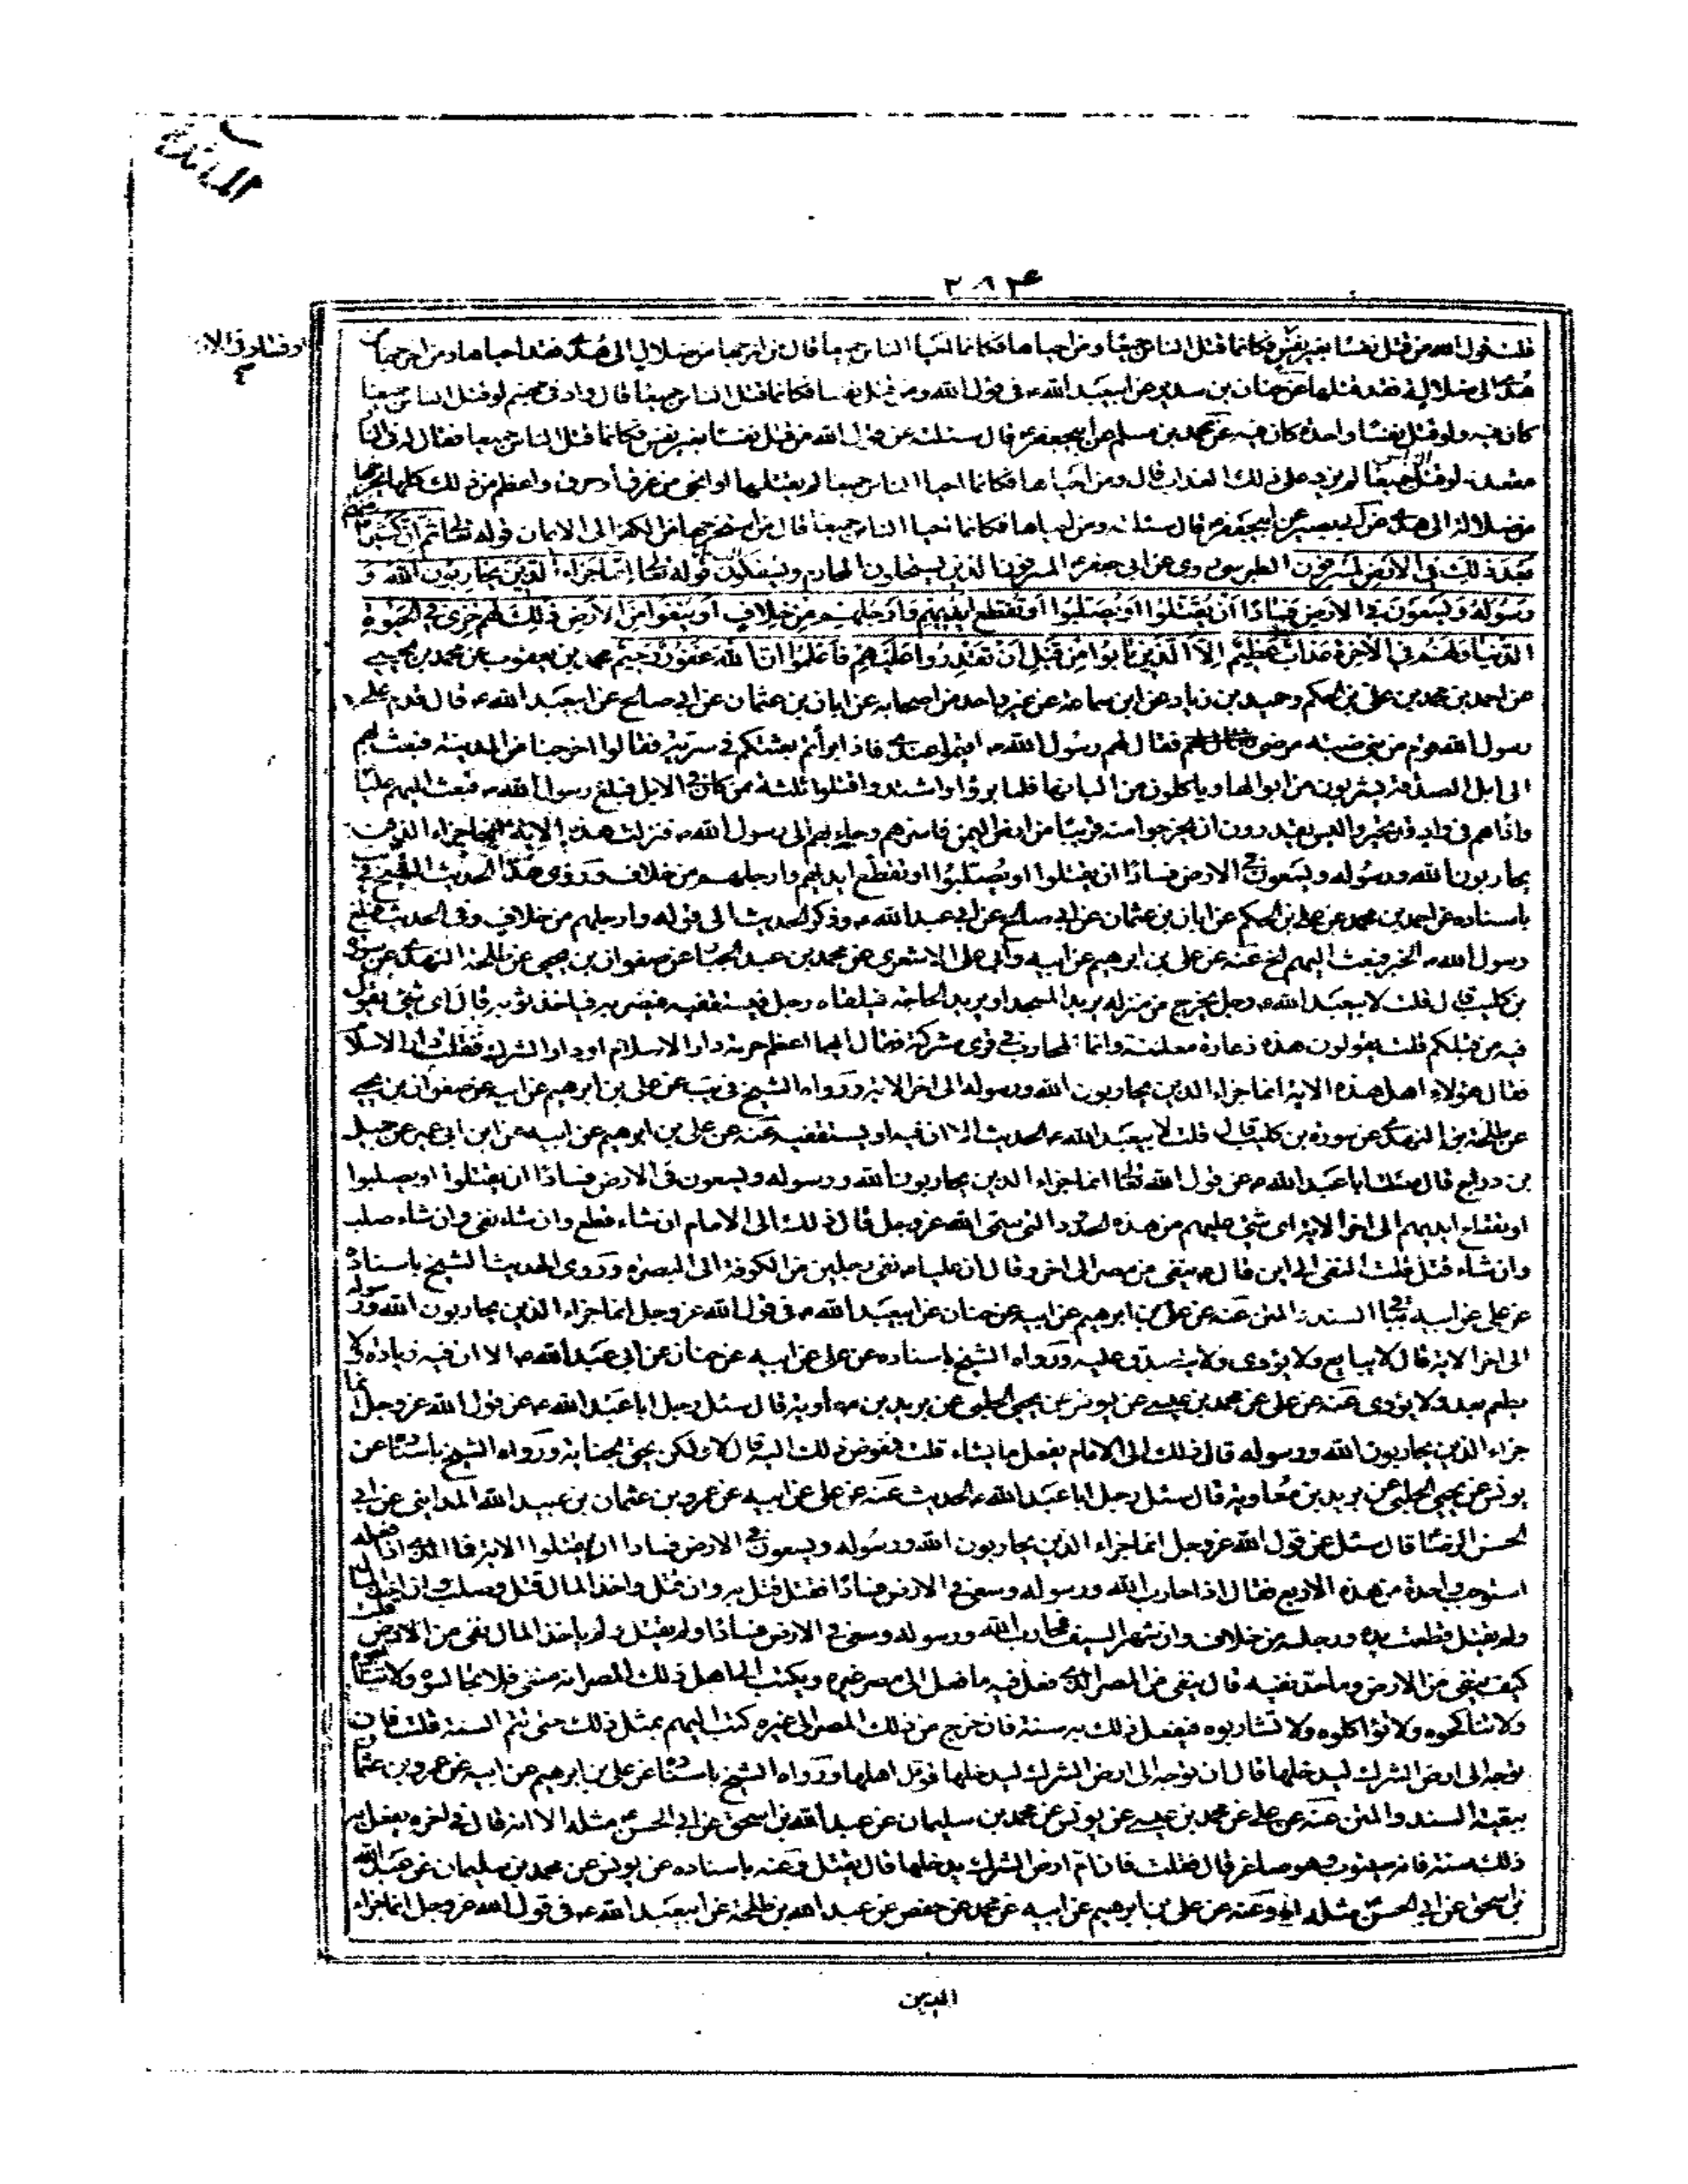 المائدة
٢٨٣
او فساد فى الارض
قلت قول الله من قتل نفسا بغير نفس فكانما قتل الناس جميعا ومن احياها فكانما احيا الناس جميعا قال من اخرجها من ضلال الى هدى فقد احياها ومن اخرجها من
هدى الى ضلال فقد قتلها عن حنان بن سدير عن ابيعبد الله ع فى قول الله ومن قتل نفسا فكانما قتل الناس جميعا قال واد فى جهنم لو قتل الناس جميعا
كان فيه ولو قتل نفسا واحدة كان فيه عن محمد بن مسلم عن ابيجعفر ع قال سئلته عن قول الله من قتل نفسا بغير نفس فكانما قتل الناس جميعا فقال له فى النار
مقعد لو قتل الناس جميعا لم يزد على ذلك العذاب قال ومن احياها فكانما احيا الناس جميعا لم يقتلها او انجى من غرق او حرق واعظم من ذلك كلها يخرجها
من ضلالة الى هدى عن ابيبصير عن ابيجعفر ع قال سئلته ومن احياها فكانما احيا الناس جميعا قال من استخرجها من الكفر الى الايمان قوله تعالى ثم ان كثيرا منهم
بعد ذلك فى الارض لمسرفون الطبرسى روى عن ابى جعفر ع المسرفون الذين يستحلون المحارم ويسفكون الدماء قوله تعالى انما جزاء الذين يحاربون الله و
رسوله ويسعون فى الارض فسادا ان يقتلوا او يصلبوا او تقطع ايديهم وارجلهم من خلاف او ينفوا من الارض ذلك لهم خزى فى الحيوة
الدنيا ولهم فى الاخرة عذاب عظيم الا الذين تابوا من قبل ان تقدروا عليهم فاعلموا ان الله غفور رحيم محمد بن يعقوب عن محمد بن يحيى
عن احمد بن محمد بن على بن الحكم وحميد بن زياد عن ابن سماعة عن غير واحد من اصحابه عن ابان بن عثمان عن ابى صالح عن ابيعبد الله ع قال قدم على
رسول الله قوم من بنى ضبة مرضى فقال لهم رسول الله ص اقيموا عندى فاذا برأتم بعثتكم فى سرية فقالوا اخرجنا من المدينة فبعث بهم
الى ابل الصدقة يشربون من ابوالها وياكلون من البانها فلما برؤا واشتدوا قتلوا ثلثة ممن كان فى الابل فبلغ رسول الله ص فبعث اليهم عليا
واذا هم فى واد قد تحيروا ليس يقدرون ان يخرجوا منه قريبا من ارض اليمن فاسرهم وجاء بهم الى رسول الله ص فنزلت هذه الاية انما جزاء الذين
يحاربون الله ورسوله ويسعون فى الارض فسادا ان يقتلوا او يصلبوا او تقطع ايديهم وارجلهم من خلاف وروى هذا الحديث الشيخ فى يب
باسناده عن احمد بن محمد عن على بن الحكم عن ابان بن عثمان عن ابى صالح عن ابى عبد الله ع وذكر الحديث الى قوله وارجلهم من خلاف وفى الحديث فبلغ
رسول الله ص الخبر فبعث اليهم الخ عنه عن على بن ابرهيم عن ابيه وابى على الاشعرى عن محمد بن عبد الجبار عن صفوان بن يحيى عن طلحة النهدى عن سورة
بن كليب قال قلت لابيعبد الله ع رجل يخرج من منزله يريد المسجد او يريد الحاجة فيلقاه رجل فيستقفيه فيضربه فياخذ ثوبه قال اى شئ يقول
فيه من قبلكم قلت يقولون هذه ذعارة معلنة وانما المحارب فى قرى مشركة فقال ايهما اعظم حرمة دار الاسلام او دار الشرك فقلت دار الاسلام
فقال هؤلاء اهل هذه الاية انما جزاء الذين يحاربون الله ورسوله الى اخر الاية ورواه الشيخ فى يب عن على بن ابرهيم عن ابيه عن صفوان بن يحيى
عن طلحة النهدى عن سورة بن كليب قال قلت لابيعبد الله ع الحديث الا ان فيه او يستقفيه عنه عن على بن ابرهيم عن ابيه عن ابن ابى عمير عن جميل
بن دراج قال سئلت ابا عبد الله ع عن قول الله تعالى انما جزاء الذين يحاربون الله ورسوله ويسعون فى الارض فسادا ان يقتلوا او يصلبوا
او تقطع ايديهم الى اخر الاية اى شئ عليهم من هذه الحدود التى سمى الله عز وجل قال ذلك الى الامام ان شاء قطع وان شاء نفى وان شاء صلب
وان شاء قتل قلت النفى الى اين قال ع ينفى من مصر الى اخر وقال ان عليا ع نفى رجلين من الكوفة الى البصرة وروى الحديث الشيخ باسناده
عن على عن ابيه بباقى السند والمتن عنه عن على بن ابرهيم عن ابيه عن حنان عن ابيعبد الله ع فى قول الله عز وجل انما جزاء الذين يحاربون الله ورسوله
الى اخر الاية قال لا يبايع ولا يؤوى ولا يتصدق عليه ورواه الشيخ باسناده عن على عن ابيه عن حنان عن ابى عبد الله ع الا ان فيه زيادة لا
يطعم بعد ولا يؤوى عنه عن على عن محمد بن عيسى عن يونس عن يحيى الحلبى عن بريد بن معاوية قال سئل رجل ابا عبد الله ع عن قول الله عز وجل انما
جزاء الذين يحاربون الله ورسوله قال ذلك الى الامام يفعل ما يشاء قلت فمفوض ذلك اليه قال لا ولكن بحق الجناية ورواه الشيخ باسناده عن
يونس عن يحيى الحلبى عن بريد بن معاوية قال سئل رجل ابا عبد الله ع الحديث عنه عن على عن ابيه عن عمرو بن عثمان بن عبيد الله المدائنى عن ابى
الحسن الرضا قال سئل عن قول الله عز وجل انما جزاء الذين يحاربون الله ورسوله ويسعون فى الارض فسادا ان يقتلوا الاية فما الذى اذا فعله
استوجب واحدة من هذه الاربع فقال اذا حارب الله ورسوله وسعى فى الارض فسادا فقتل قتل به وان قتل واخذ المال قتل وصلب وان اخذ المال
ولم يقتل قطعت يده ورجله من خلاف وان شهر السيف فحارب الله ورسوله وسعى فى الارض فسادا ولم يقتل ولم ياخذ المال نفى من الارض قلت
كيف ينفى من الارض وما حد نفيه قال ينفى من المصر الذى فعل فيه ما فعل الى مصر غيره ويكتب الى اهل ذلك المصر انه منفى فلا تجالسوه ولا تبايعوه
ولا تناكحوه ولا تؤاكلوه ولا تشاربوه فيفعل ذلك به سنة فان خرج من ذلك المصر الى غيره كتب اليهم بمثل ذلك حتى تتم السنة قلت فان
توجه الى ارض الشرك ليدخلها قال ان توجه الى ارض الشرك ليدخلها قوتل اهلها ورواه الشيخ باسناده عن على بن ابرهيم عن ابيه عن عمرو بن عثمان
ببقية السند والمتن عنه عن على عن محمد بن عيسى عن يونس عن محمد بن سليمان عن عبد الله بن اسحق عن ابى الحسن ع مثله الا انه قال فى اخره يفعل به
ذلك سنة فانه سيتوب وهو صاغر قال فقلت فان ام ارض الشرك يدخلها قال يقتل وعنه باسناده عن يونس عن محمد بن سليمان عن عبد الله
بن اسحق عن ابى الحسن ع مثله وعنه عن على بن ابرهيم عن ابيه عن محمد عن حفص عن عبد الله بن طلحة عن ابيعبد الله ع فى قول الله عز وجل انما جزاء
الذين